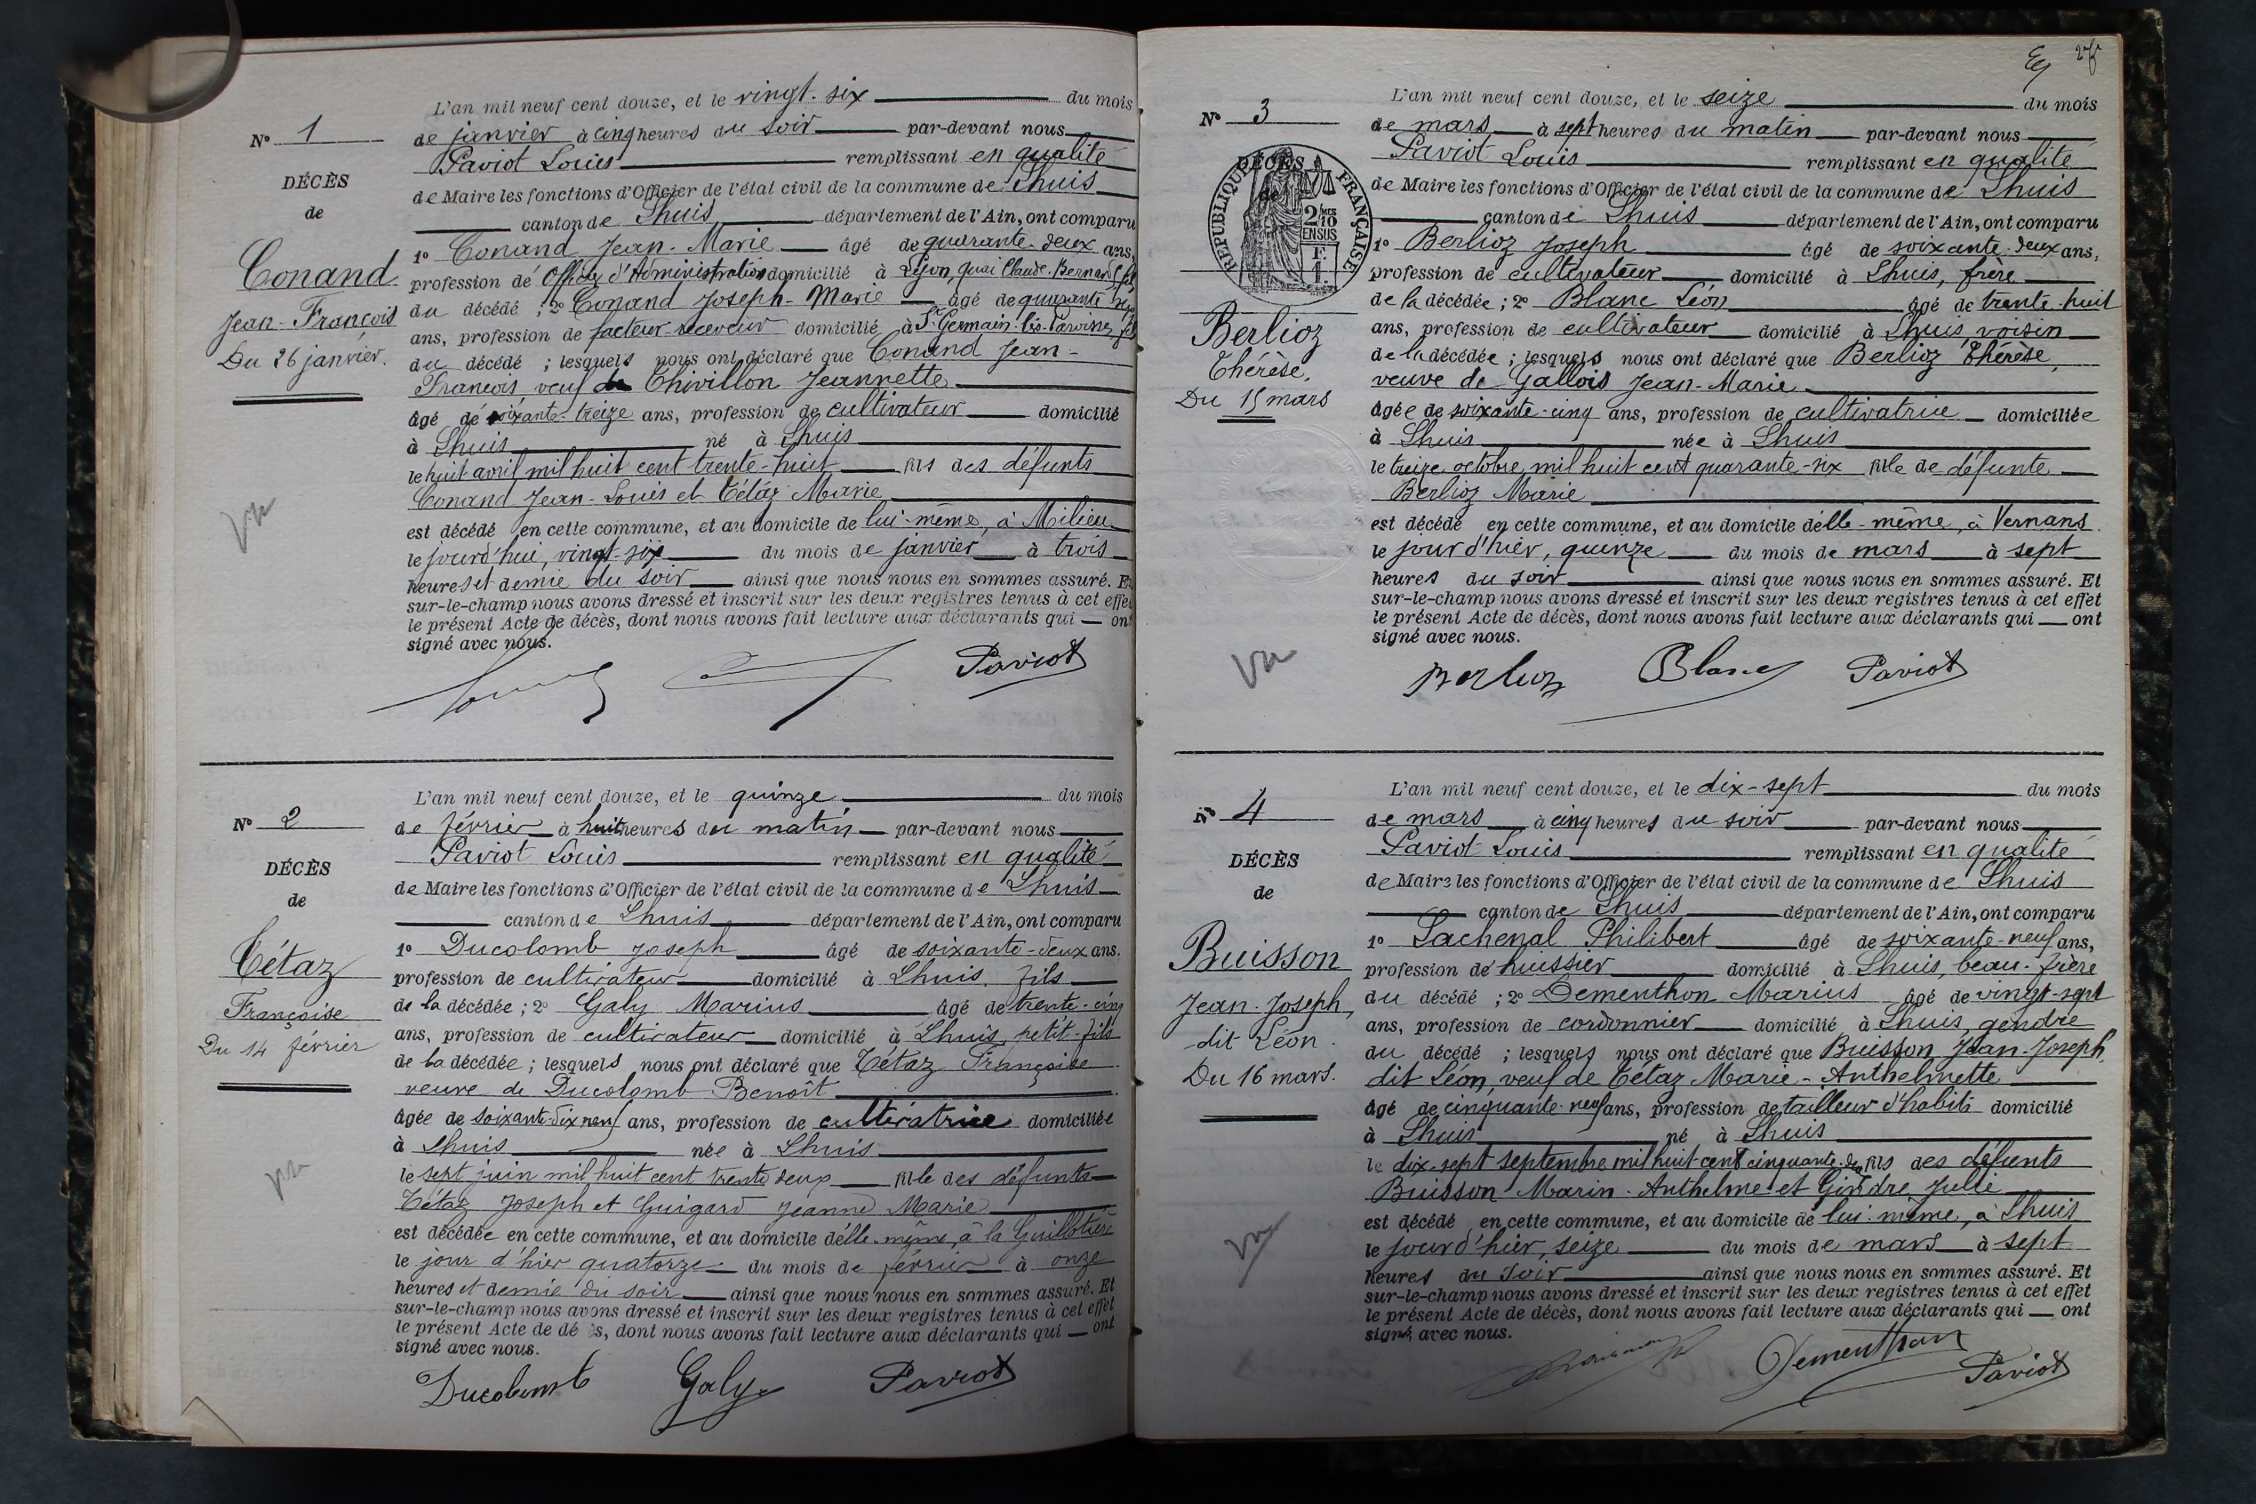 N° 1
DÉCÈS
de
Conand
Jean-François
Du 26 janvier.
L'an mil neuf cent douze, et le vingt-six du mois
de janvier à cinq heures du soir par-devant nous
Paviot Louis remplissant en qualité
de Maire les fonctions d'Officier de l'état civil de la commune de Lhuis
canton de Lhuis département de l'Ain, ont comparu
1° Conand Jean-Marie âgé de quarante-deux ans,
profession de Officier d'Administration domicilié à Lyon, quai Claude-Bernard, fils
du décédé ; 2° Conand Joseph-Marie âgé de quarante
ans, profession de facteur receveur domicilié à St Germain-les-Paroisses, fils
du décédé ; lesquels nous ont déclaré que Conand Jean-
François veuf de Chivillon Jeannette
âgé de soixante-treize ans, profession de cultivateur domicilié
à Lhuis né à Lhuis
le huit avril mil huit cent trente-huit fils des défunts
Conand Jean-Louis et Tétaz Marie
est décédé en cette commune, et au domicile de lui-même, à Milieu
le jourd'hui, vingt-six du mois de janvier à trois
heures et demie du soir ainsi que nous nous en sommes assuré. Et
sur-le-champ nous avons dressé et inscrit sur les deux registres tenus à cet effet
le présent Acte de décès, dont nous avons fait lecture aux déclarants qui ont
signé avec nous.
Paviot
N° 2
DÉCÈS
de
Tétaz
Françoise
Du 14 février
L'an mil neuf cent douze, et le quinze du mois
de février à huit heures du matin par-devant nous
Paviot Louis remplissant en qualité
de Maire les fonctions d'Officier de l'état civil de la commune de Lhuis
canton de Lhuis département de l'Ain, ont comparu
1° Ducolomb Joseph âgé de soixante-deux ans.
profession de cultivateur domicilié à Lhuis, fils
de la décédée ; 2° Galy Marius âgé de trente-cinq
ans, profession de cultivateur domicilié à Lhuis, petit-fils
de la décédée ; lesquels nous ont déclaré que Tétaz Françoise
veuve de Ducolomb Benoît
âgée de soixante-dix neuf ans, profession de cultivatrice domiciliée
à Lhuis née à Lhuis
le sept juin mil huit cent trente deux fille des défunts
Tétaz Joseph et Guigard Jeanne Marie
est décédée en cette commune, et au domicile d'elle-même, à la Guillotière
le jour d'hier quatorze du mois de février à onze
heures et demie du soir ainsi que nous nous en sommes assuré. Et
sur-le-champ nous avons dressé et inscrit sur les deux registres tenus à cet effet
le présent Acte de dé ès, dont nous avons fait lecture aux déclarants qui ont
signé avec nous.
Ducolomb Galy Paviot
N° 3
DÉCÈS
de
RÉPUBLIQUE FRANÇAISE
2/10 EN SUS
1 F.
Berlioz
Thérèse,
Du 15 mars
L'an mil neuf cent douze, et le seize du mois
de mars à sept heures du matin par-devant nous
Paviot Louis remplissant en qualité
de Maire les fonctions d'Officier de l'état civil de la commune de Lhuis
canton de Lhuis département de l'Ain, ont comparu
1° Berlioz Joseph âgé de soixante-deux ans,
profession de cultivateur domicilié à Lhuis, frère
de la décédée ; 2° Blanc Léon âgé de trente-huit
ans, profession de cultivateur domicilié à Lhuis, voisin
de la décédée ; lesquels nous ont déclaré que Berlioz Thérèse,
veuve de Gallois Jean-Marie
âgée de soixante-cinq ans, profession de cultivatrice domiciliée
à Lhuis née à Lhuis
le treize octobre mil huit cent quarante-six fille de défunte
Berlioz Marie
est décédé en cette commune, et au domicile d'elle-même, à Vernans
le jour d'hier, quinze du mois de mars à sept
heures du soir ainsi que nous nous en sommes assuré. Et
sur-le-champ nous avons dressé et inscrit sur les deux registres tenus à cet effet
le présent Acte de décès, dont nous avons fait lecture aux déclarants qui ont
signé avec nous.
Berlioz Blanc Paviot
N° 4
DÉCÈS
de
Buisson
Jean-Joseph,
dit Léon.
Du 16 mars.
L'an mil neuf cent douze, et le dix-sept du mois
de mars à cinq heures du soir par-devant nous
Paviot Louis remplissant en qualité
de Maire les fonctions d'Officier de l'état civil de la commune de Lhuis
canton de Lhuis département de l'Ain, ont comparu
1° Lachenal Philibert âgé de soixante-neuf ans,
profession de huissier domicilié à Lhuis, beau-frère
du décédé ; 2° Dementhon Marius âgé de vingt-sept
ans, profession de cordonnier domicilié à Lhuis, gendre
du décédé ; lesquels nous ont déclaré que Buisson Jean-Joseph
dit Léon, veuf de Tétaz Marie-Anthelmette
âgé de cinquante-neuf ans, profession de tailleur d'habits domicilié
à Lhuis né à Lhuis
le dix-sept septembre mil huit cent cinquante-deux fils des défunts
Buisson Marin-Anthelme et Gindre Julie
est décédé en cette commune, et au domicile de lui-même, à Lhuis
le jour d'hier, seize du mois de mars à sept
heures du soir ainsi que nous nous en sommes assuré. Et
sur-le-champ nous avons dressé et inscrit sur les deux registres tenus à cet effet
le présent Acte de décès, dont nous avons fait lecture aux déclarants qui ont
signé avec nous.
Dementhon
Paviot